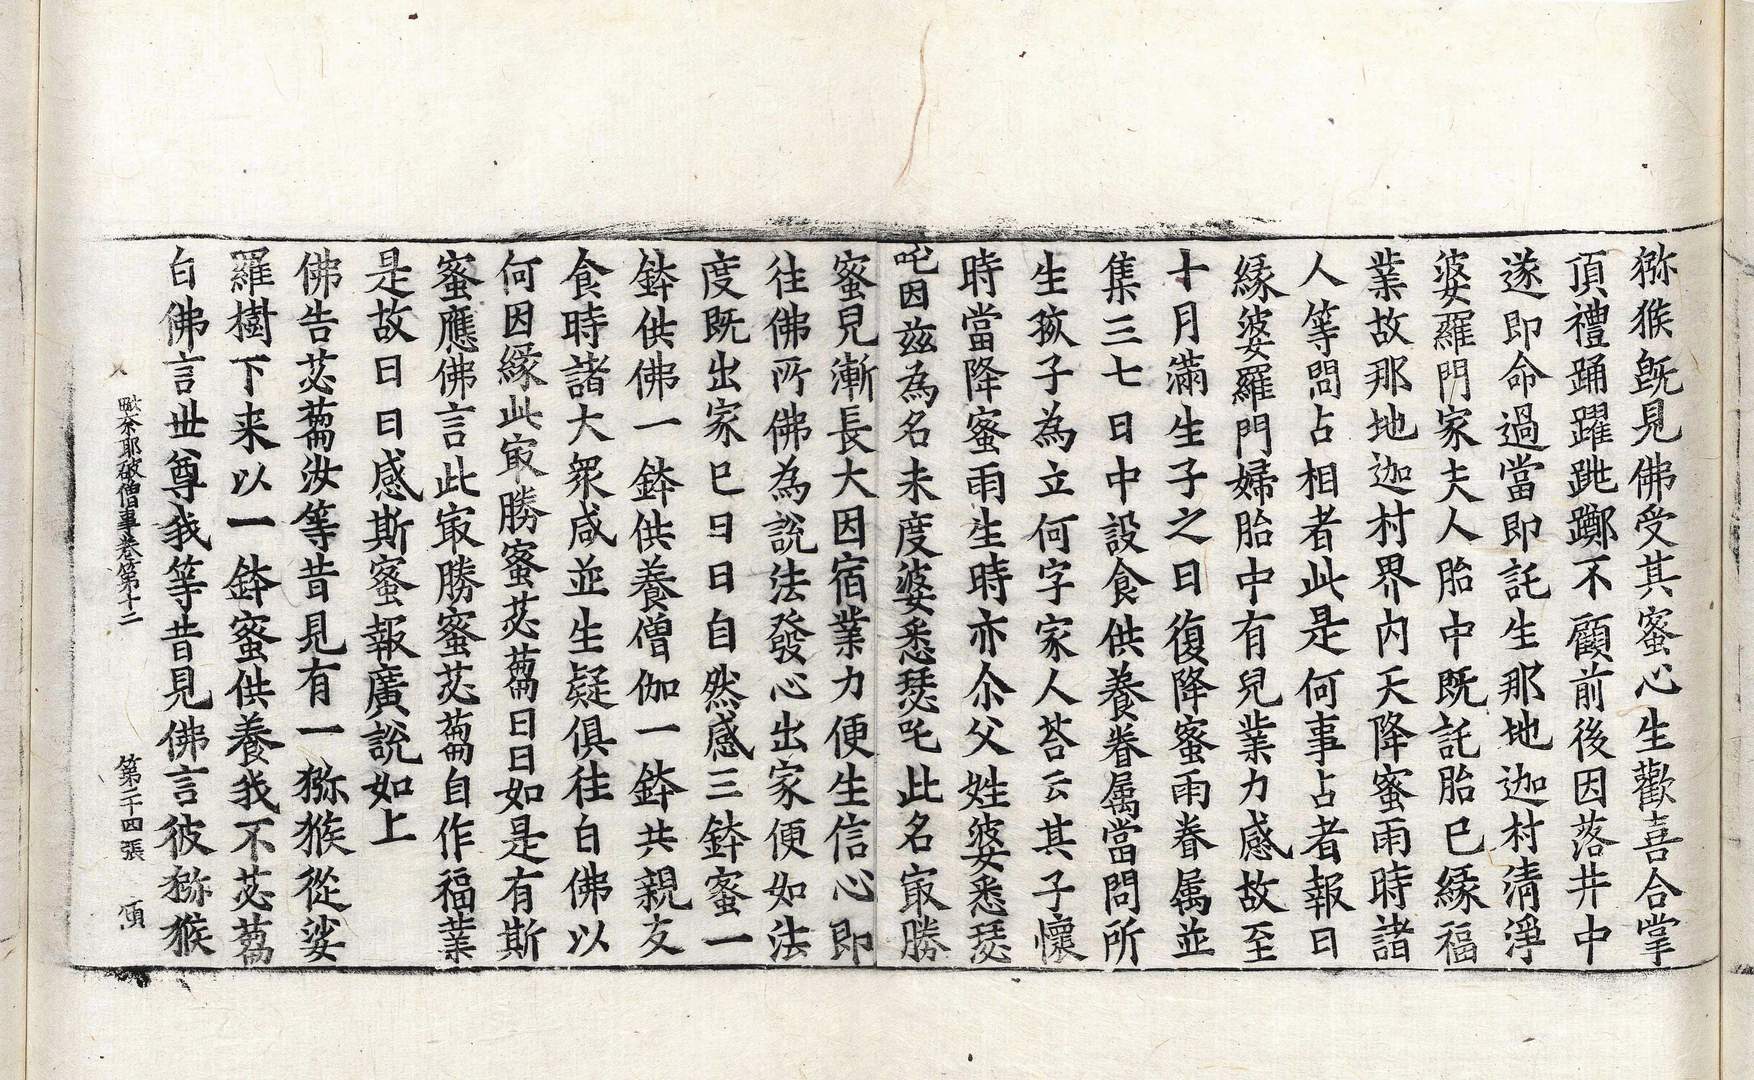 猕猴旣見佛受其蜜心生歡喜合掌
頂禮踊躍跳躑不顧前後因落井中
遂即命過當即託生那地迦村清淨
婆羅門家夫人胎中既託胎已緣福
業故那地迦村界內天降蜜雨時諸
人等問占相者此是何事占者報曰
緣婆羅門婦胎中有兒業力感故至
十月滿生子之日復降蜜雨眷属並
集三七日中設食供養眷属當問所
生孩子為立何字家人荅云其子懷
時當降蜜雨生時亦尒父姓婆悉瑟
吒因茲為名末度婆悉瑟吒此名㝡勝
蜜兒漸長大因宿業力便生信心即
往佛所佛為說法發心出家便如法
度既出家已日日自然感三鉢蜜一
鉢供佛一鉢供養僧伽一鉢共親友
食時諸大衆咸並生疑俱往白佛以
何因緣此㝡勝蜜苾蒭日日如是有斯
蜜應佛言此㝡勝蜜苾蒭自作福業
是故日日感斯蜜報廣說如上
佛告苾蒭汝等昔見有一猕猴從娑
羅樹下来以一鉢蜜供養我不苾蒭
白佛言世尊我等昔見佛言彼猕猴
奈耶破僧事卷第十二 第二十四張